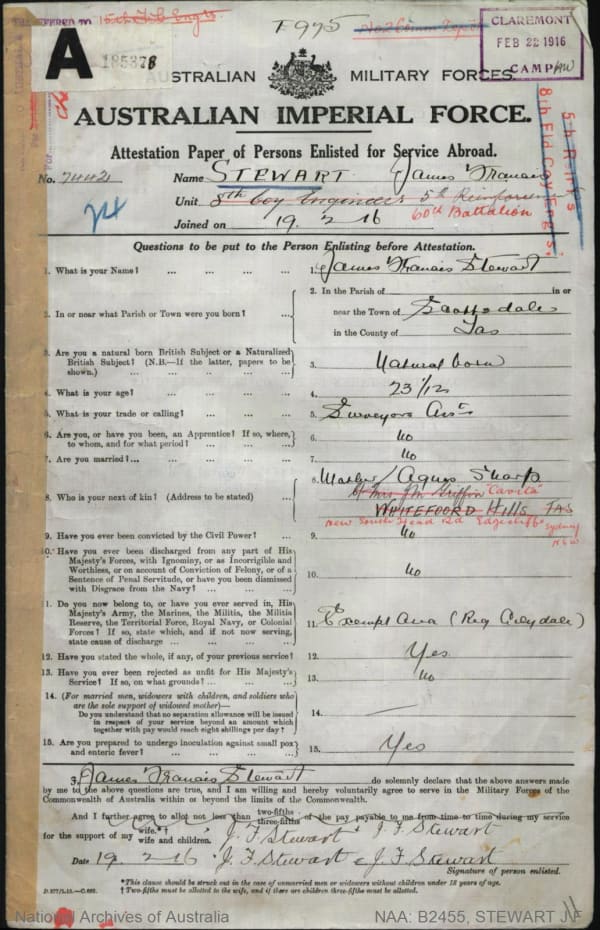 15th F.C. Engrs
F975
CLAREMONT
FEB 22 1916
CAMP
A
185378
AUSTRALIAN MILITARY FORCES.
AUSTRALIAN IMPERIAL FORCE.
Attestation Paper of Persons Enlisted for Service Abroad.
5th Reinf's
8th Fld Coy Engrs
No. 7442 Name STEWART James Francis
Unit 8th Coy Engineers 5th Reinforcem
60th Battalion
Joined on 19 2 16
Questions to be put to the Person Enlisting before Attestation.
1. What is your Name? ... ... ... ... 1. James Francis Stewart
2. In or near what Parish or Town were you born? ... 2. In the Parish of in or
near the Town of Scottsdale
in the County of Tas
3. Are you a natural born British Subject or a Naturalized
British Subject? (N.B.—If the latter, papers to be
shown.) ... ... ... ... ... 3. Natural born
4. What is your age? ... ... ... ... 4. 23 1/12
5. What is your trade or calling? ... ... ... 5. Surveyors Asst
6. Are you, or have you been, an Apprentice? If so, where,
to whom, and for what period? ... ... ... 6. No
7. Are you married? ... ... ... ... 7. No
8. Who is your next of kin? (Address to be stated) ... 8. Mother/ Agnes Sharp
C/- Mrs M. Griffin "Cavita"
WHITEFOORD Hills TAS
New South Head Rd Edgecliffe Sydney
NSW
9. Have you ever been convicted by the Civil Power? ... 9. No
10. Have you ever been discharged from any part of His
Majesty's Forces, with Ignominy, or as Incorrigible and
Worthless, or on account of Conviction of Felony, or of a
Sentence of Penal Servitude, or have you been dismissed
with Disgrace from the Navy? ... ... ... 10. No
11. Do you now belong to, or have you ever served in, His
Majesty's Army, the Marines, the Militia, the Militia
Reserve, the Territorial Force, Royal Navy, or Colonial
Forces? If so, state which, and if not now serving,
state cause of discharge ... ... ... 11. Exempt Area
12. Have you stated the whole, if any, of your previous service? 12. Yes
13. Have you ever been rejected as unfit for His Majesty's
Service? If so, on what grounds? ... ... ... 13. No
14. (For married men, widowers with children, and soldiers who
are the sole support of widowed mother)—
Do you understand that no separation allowance will be issued
in respect of your service beyond an amount which
together with pay would reach eight shillings per day? 14. —
15. Are you prepared to undergo inoculation against small pox
and enteric fever? ... ... ... ... 15. Yes
I, James Francis Stewart do solemnly declare that the above answers made
by me to the above questions are true, and I am willing and hereby voluntarily agree to serve in the Military Forces of the
Commonwealth of Australia within or beyond the limits of the Commonwealth.
And I further agree to allot not less than two-fifths three-fifths of the pay payable to me from time to time during my service
for the support of my wife.*† wife and children. J. F Stewart J. F Stewart
Date 19 2 16 J. F Stewart J. F. Stewart
Signature of person enlisted.
*This clause should be struck out in the case of unmarried men or widowers without children under 18 years of age.
† Two-fifths must be allotted to the wife, and if there are children three-fifths must be allotted.
National Archives of Australia NAA: B2455, STEWART J F